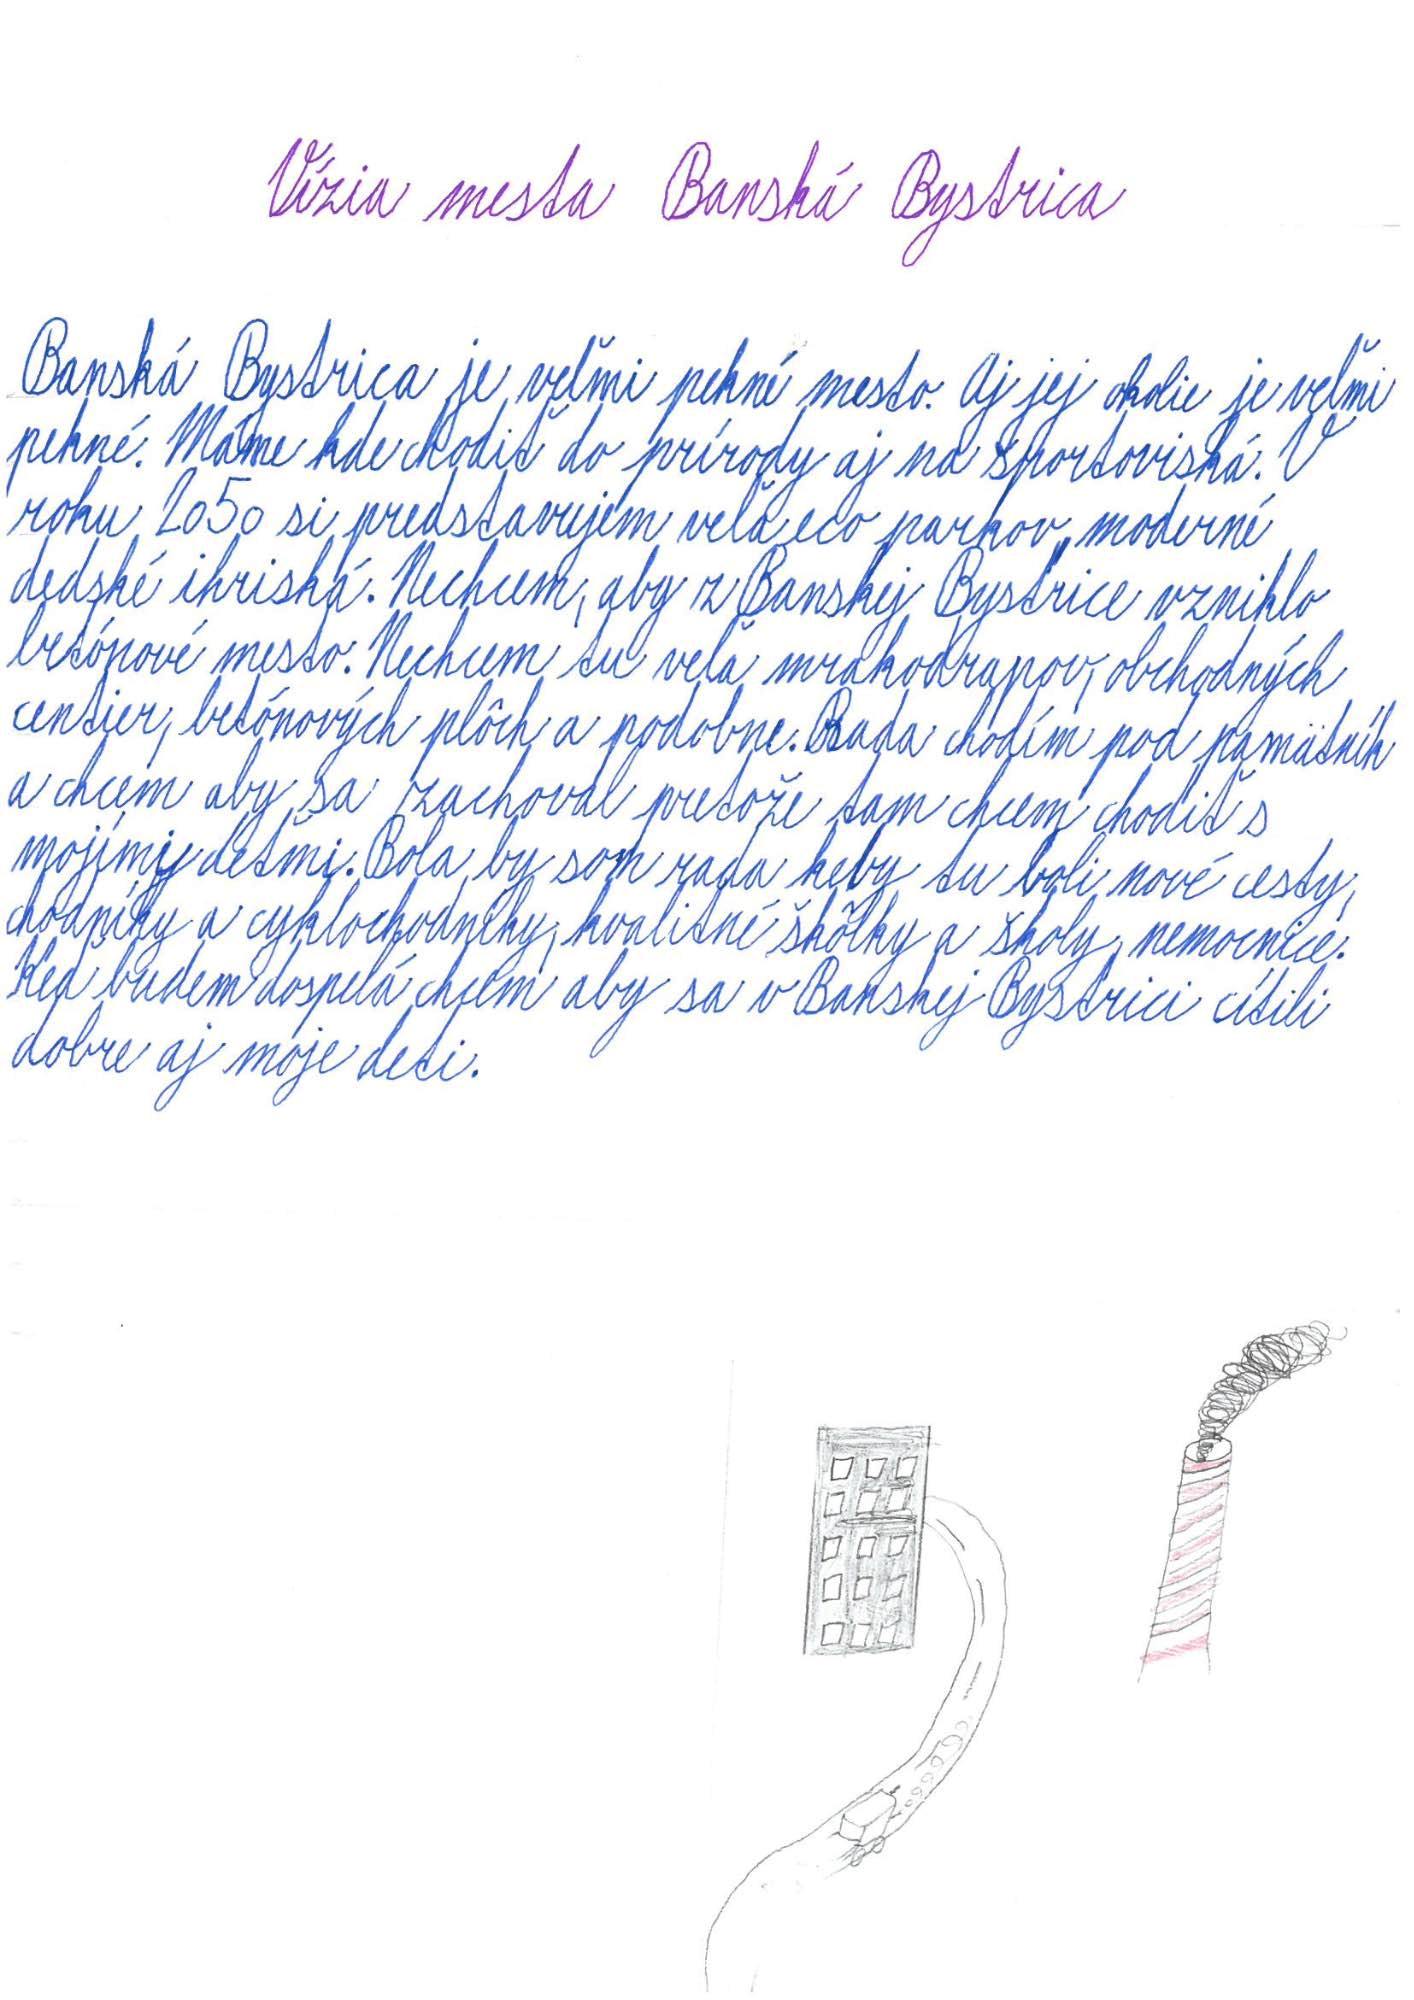 Vízia mesta Banská Bystrica
Banská Bystrica je veľmi pekné mesto. Aj jej okolie je veľmi
pekné. Máme kde chodiť do prírody aj na športoviská. V
roku 2050 si predstavujem veľa eco parkov, moderné
dedské ihriská. Nechcem, aby z Banskej Bystrice vzniklo
betónové mesto. Nechcem tu veľa mrakodrapov, obchodných
centier, betónových plôch a podobne. Rada chodím pod pamätník
a chcem aby sa zachoval pretože tam chcem chodiť s
mojimi deťmi. Bola by som rada keby tu boli nové cesty,
chodníky a cyklochodníky, kvalitné škôlky a školy, nemocnice.
Keď budem dospelá chcem aby sa v Banskej Bystrici cítili
dobre aj moje deti.